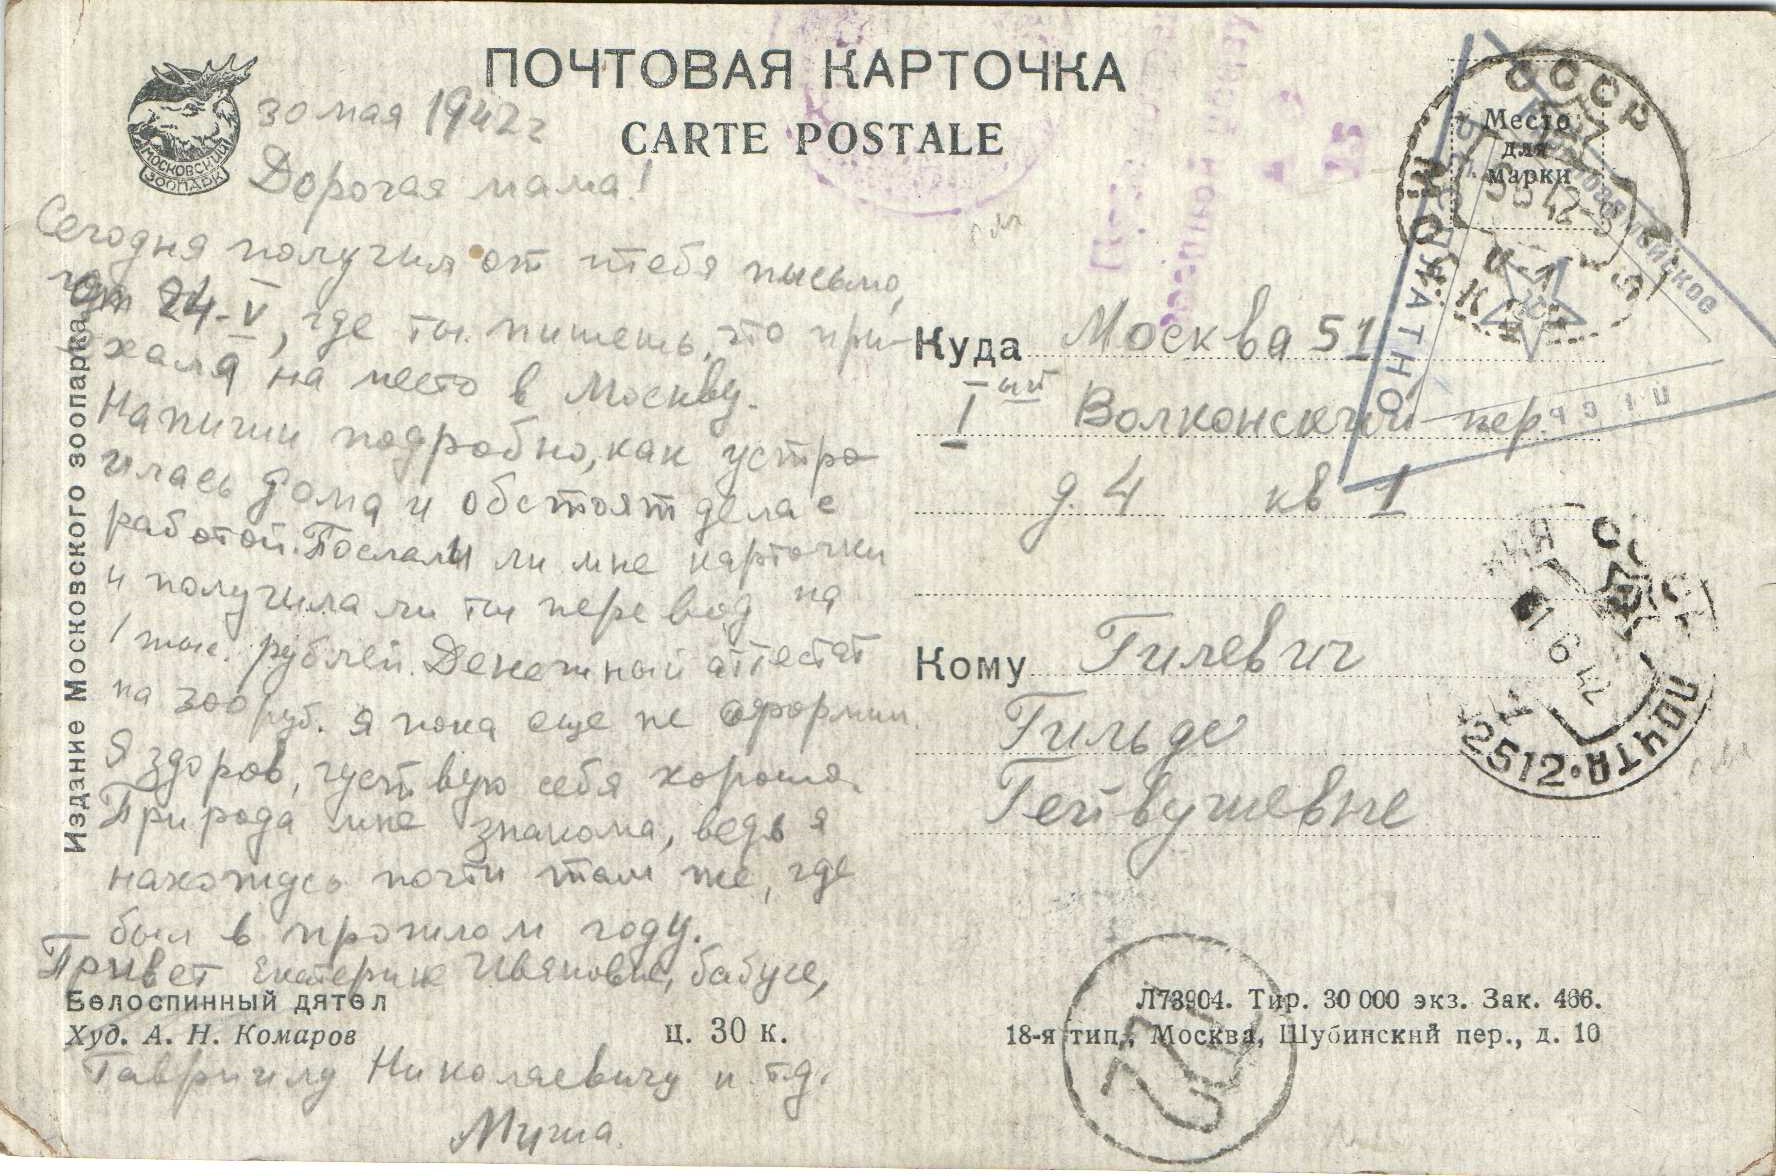 ПОЧТОВАЯ КАРТОЧКА
CARTE POSTALE
МОСКОВСКИЙ
ЗООПАРК
30 мая 1942 г
Дорогая мама!
Сегодня получил от тебя письмо,
от 24-V, где ты пишешь, что при-
ехала на место в Москву.
Напиши подробно, как устро
илась дома и обстоят дела с
работой. Послали ли мне карточки
и получила ли ты перевод на
1 тыс. рублей. Денежный аттестат
на 300 руб. я пока еще не оформил.
Я здоров, чувствую себя хорошо.
Природа мне знакома, ведь я
нахожусь почти там же, где
был в прошлом году.
Привет Екатерине Ивановне, бабусе,
Гавриилу Николаевичу и т.д.
Муша.
Издание Московского зоопарка
Белоспинный дятел
Худ. А. Н. Комаров
ц. 30 к.
Место
для
марки
СССР
МОСКВА
БЕСПЛАТНО
Куда Москва 51
I ый Волконский пер.
д. 4 кв 1
Кому Гилевич
Гильде
Гейвушевне
СССР
1 6 42
2512 ПОЧТА
Л73904. Тир. 30 000 экз. Зак. 466.
18-я тип., Москва, Шубинский пер., д. 10